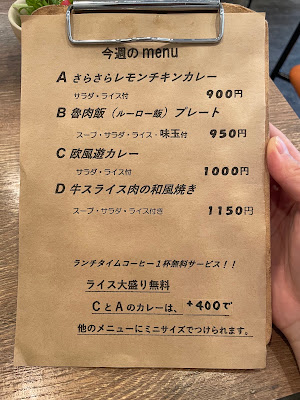 今週の menu
A さらさらレモンチキンカレー
サラダ・ライス付 900円
B 魯肉飯（ルーロー飯）プレート
スープ・サラダ・ライス・味玉付 950円
C 欧風遊カレー
サラダ・ライス付 1000円
D 牛スライス肉の和風焼き
スープ・サラダ・ライス付き 1150円
ランチタイムコーヒー１杯無料サービス！！
ライス大盛り無料
CとAのカレーは、+400で
他のメニューにミニサイズでつけられます。